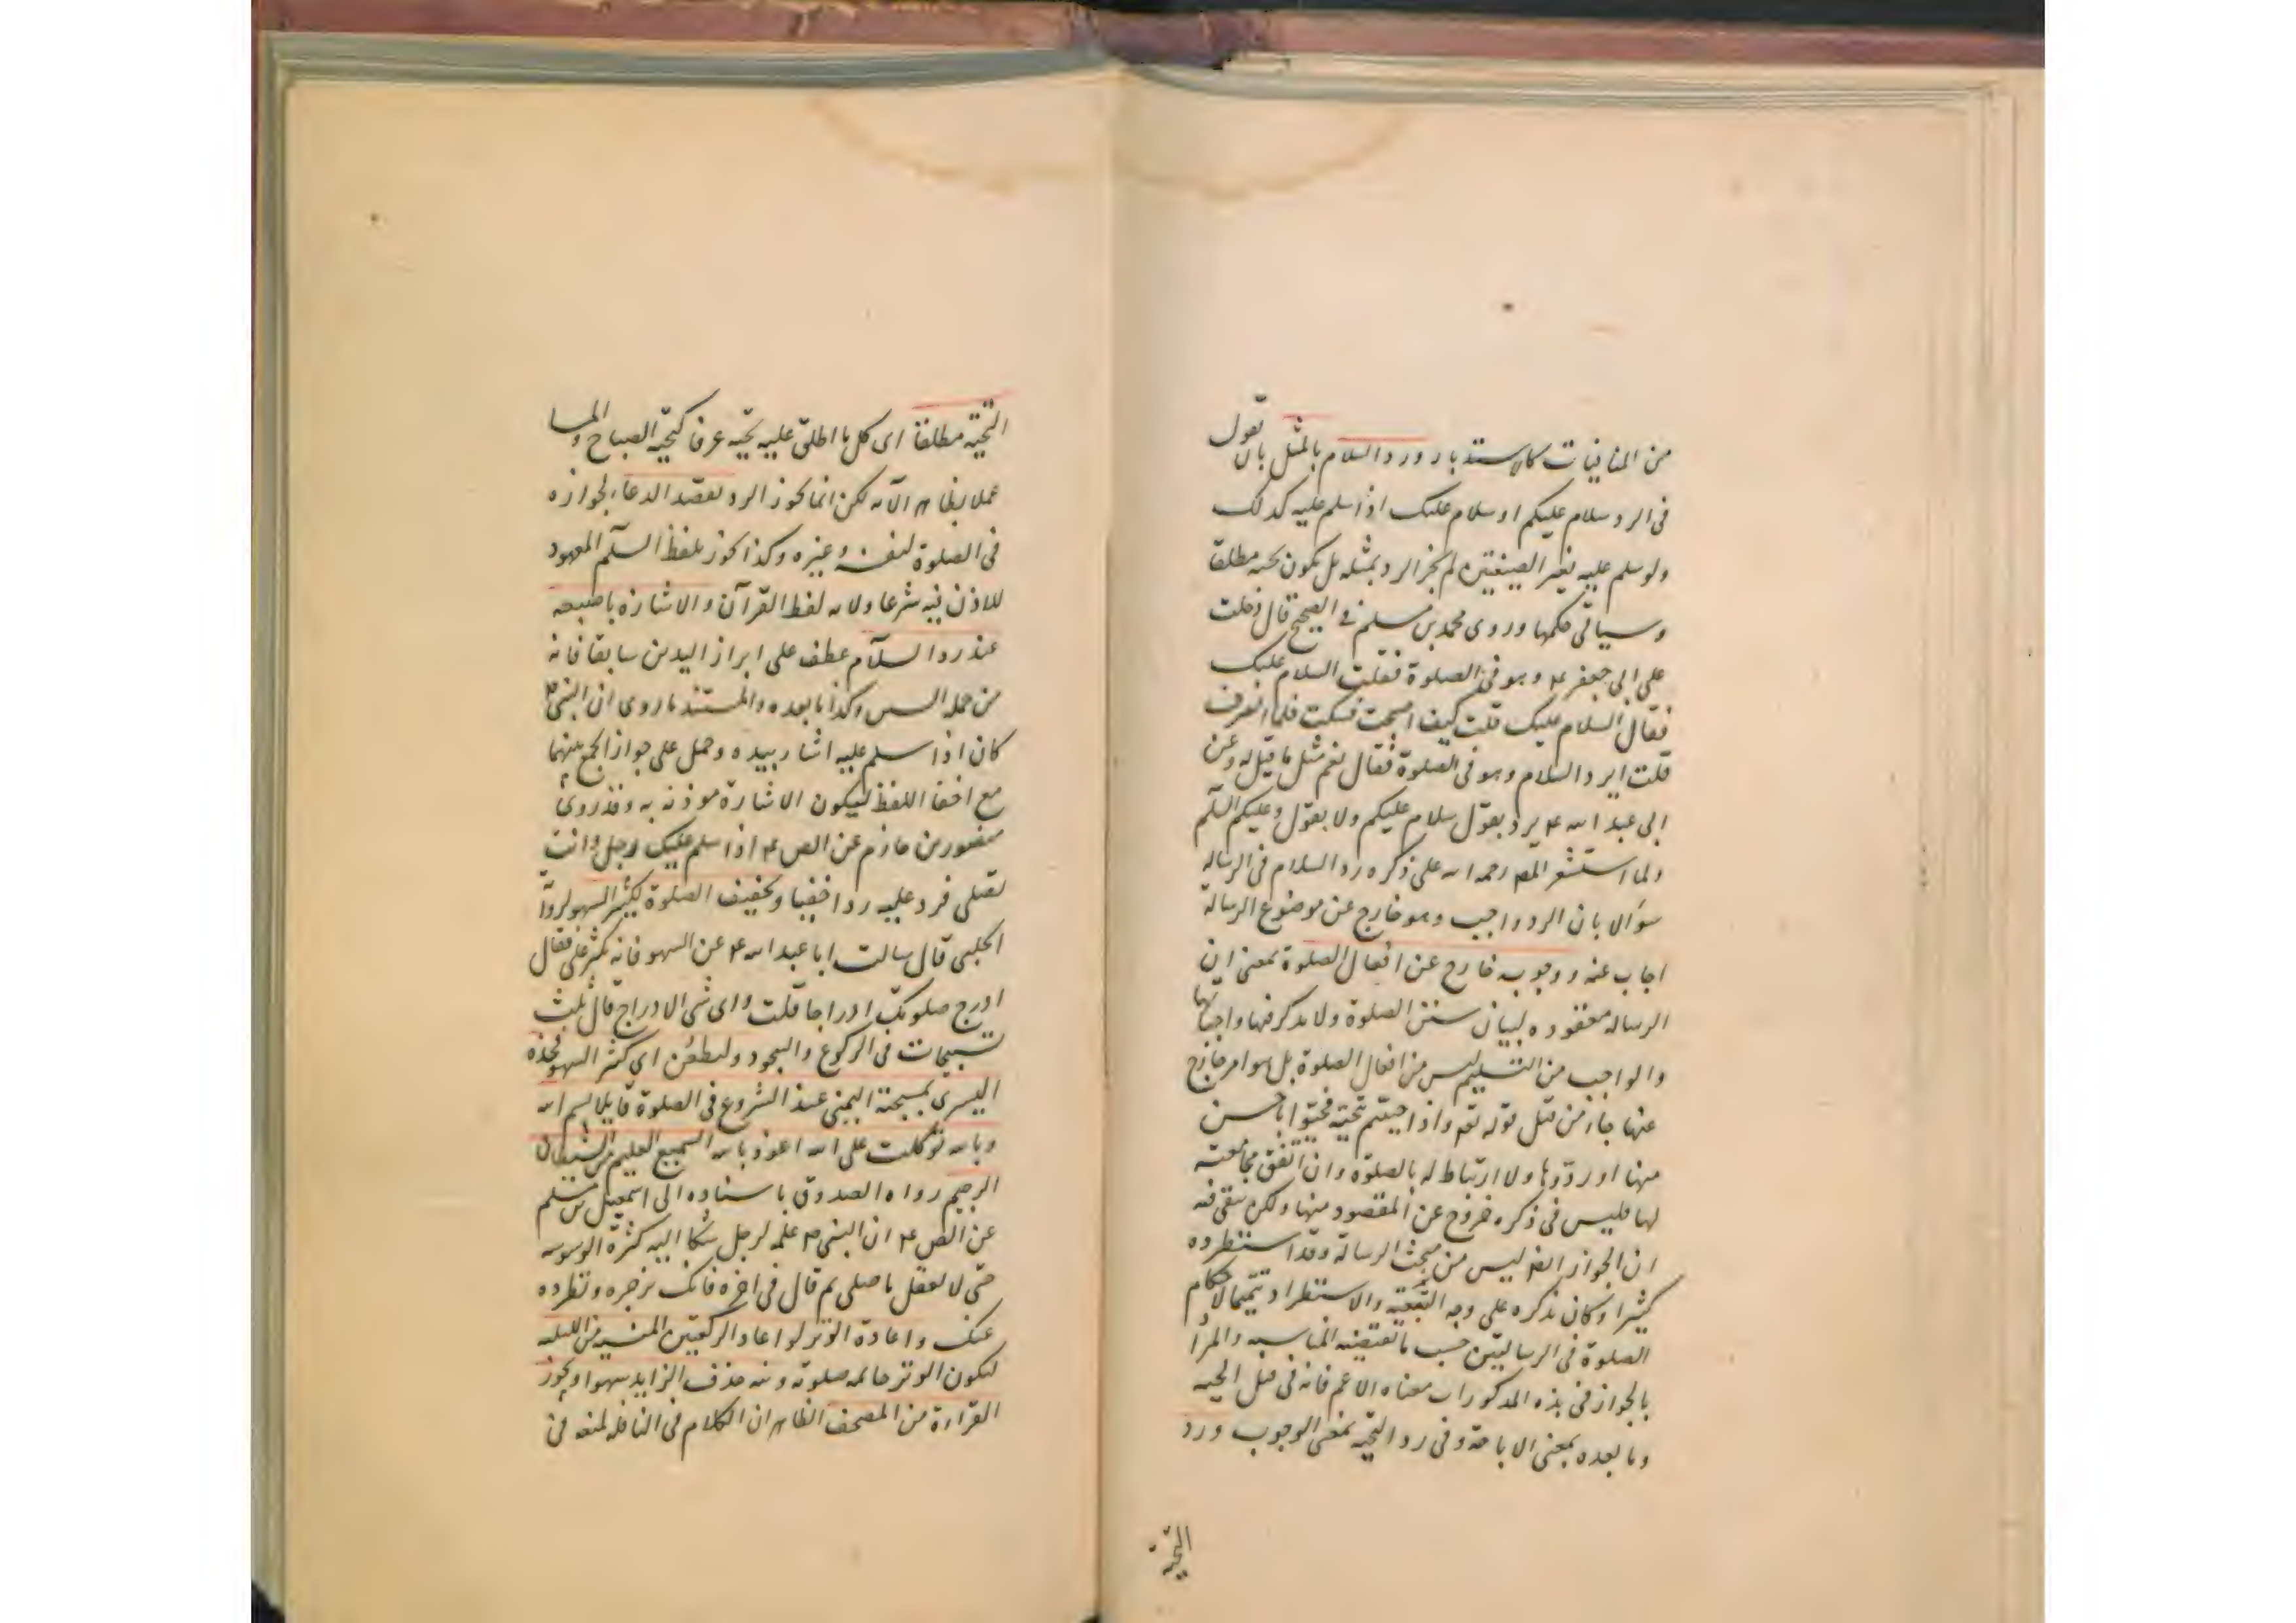 من المنافيات كالاستدبار ورد السلام بالمثل بان يقول
فى الرد سلام عليكم او سلام عليك اذا سلم عليه كذلك
ولو سلم عليه بغير الصيغتين لم يجز الرد بمثله بل يكون تحية مطلقا
وسياتى حكمها وروى محمد بن مسلم فى الصحيح قال دخلت
على ابى جعفر ع وهو فى الصلوة فقلت السلام عليك
فقال السلام عليك قلت كيف اصبحت فسكت فلما انصرف
قلت ايرد السلام وهو فى الصلوة فقال نعم مثل ما قيل له وعن
ابى عبد الله ع يرد بقول سلام عليكم ولا يقول وعليكم السلم
ولما استشعر المص رحمه الله على ذكره رد السلام فى الرسالة
سؤالا بان الرد واجب وهو خارج عن موضوع الرسالة
اجاب عنه ووجوبه خارج عن افعال الصلوة بمعنى ان
الرسالة معقوده لبيان سنن الصلوة ولا يذكر فيها واجباتها
والواجب من التسليم ليس من افعال الصلوة بل هو امر خارج
عنها جاء من قبل قوله تع واذا حييتم بتحية فحيوا باحسن
منها او ردوها ولا ارتباط له بالصلوة وان اتفق مجامعته
لها فليس فى ذكره خروج عن المقصود منها ولكن يبقى فيه
ان الجواز ايضا ليس من مبحث الرسالة وقد استطرده
كثيرا وكان يذكره على وجه التبعية والاستطراد تتميما لاحكام
الصلوة فى الرسالتين حسب ما تقتضيه المناسبة والمراد
بالجواز فى هذه المذكورات معناه الاعم فانه فى قتل الحية
وما بعده بمعنى الاباحة وفى رد التحية بمعنى الوجوب ورد
التحية
التحية مطلقا اى كل ما اطلق عليه تحية عرفا كتحية الصباح والمسا
عملا بظاهر الآية لكن انما يجوز الرد بقصد الدعاء لجوازه
فى الصلوة لنفسه وغيره وكذا يجوز بلفظ السلم المعهود
للاذن فيه شرعا ولانه لفظ القرآن والاشارة باصبعه
عند رد السلام عطف على ابراز اليدين سابقا فانه
من جملة السنن وكذا ما بعده والمستند ما روى ان النبى ص
كان اذا سلم عليه اشار بيده وحمل على جواز الجمع بينهما
مع اخفا اللفظ ليكون الاشارة موذنة به وقد روى
منصور بن حازم عن الص ع اذا سلم عليك رجل وانت
تصلى فرد عليه ردا خفيا وتخفيف الصلوة لكثير السهو لرواية
الحلبى قال سالت ابا عبد الله ع عن السهو فانه يكثر على فقال
ادرج صلوتك ادراجا قلت واى شى الادراج قال ثلث
تسبيحات فى الركوع والسجود وليطعن اى كثير السهو فخذه
اليسرى بمسبحته اليمنى عند الشروع فى الصلوة قايلا بسم الله
وبالله توكلت على الله اعوذ بالله السميع العليم من الشيطان
الرجيم رواه الصدوق باسناده الى اسمعيل بن مسلم
عن الص ع ان النبى ص علمه لرجل شكا اليه كثرة الوسوسه
حتى لا يعقل ما صلى ثم قال فى اخره فانك تزجره وتطرده
عنك واعادة الوتر لو اعاد الركعتين المنسيه من الليلة
ليكون الوتر خاتمة صلوته وحذف الزايد سهوا ويجوز
القراءة من المصحف الظاهر ان الكلام فى النافلة لمنعه فى